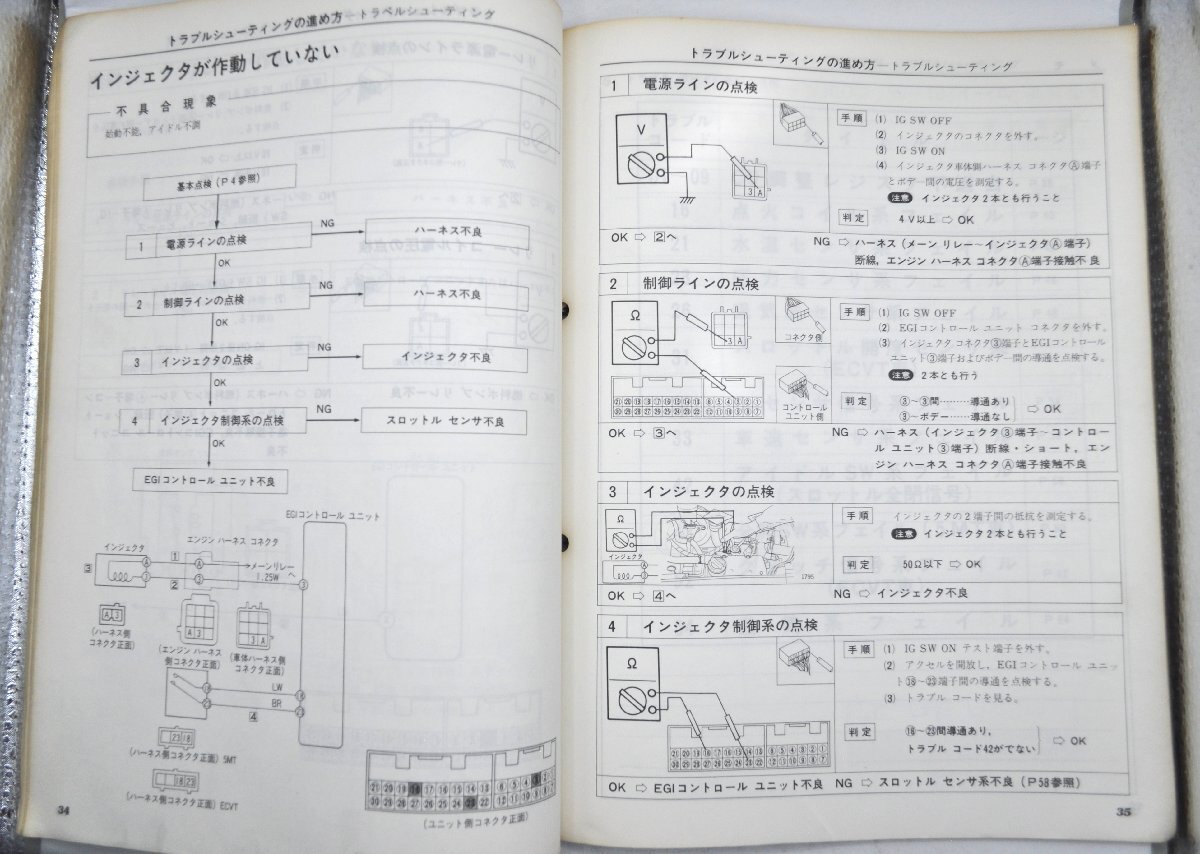 トラブルシューティングの進め方―トラベルシューティング
インジェクタが作動していない
不具合現象
始動不能，アイドル不調
基本点検（P4参照）
1 電源ラインの点検
NG
ハーネス不良
OK
2 制御ラインの点検
NG
ハーネス不良
OK
3 インジェクタの点検
NG
インジェクタ不良
OK
4 インジェクタ制御系の点検
NG
スロットル センサ不良
OK
EGIコントロール ユニット不良
EGIコントロール ユニット
エンジン ハーネス コネクタ
インジェクタ
メーンリレー
1.25W へ
（ハーネス側
コネクタ正面）
（エンジン ハーネス
側コネクタ正面）
（車体ハーネス側
コネクタ正面）
LW
BR
4
（ハーネス側コネクタ正面）5MT
（ハーネス側コネクタ正面）ECVT
（ユニット側コネクタ正面）
34
トラブルシューティングの進め方―トラブルシューティング
1 電源ラインの点検
V
3 A
手順 (1) IG SW OFF
(2) インジェクタのコネクタを外す。
(3) IG SW ON
(4) インジェクタ車体側ハーネス コネクタⒶ端子
とボデー間の電圧を測定する。
注意 インジェクタ2本とも行うこと
判定 4V以上 ⇨ OK
OK ⇨ 2へ
NG ⇨ ハーネス（メーン リレー～インジェクタⒶ端子）
断線，エンジン ハーネス コネクタⒶ端子接触不良
2 制御ラインの点検
Ω
3 A
コネクタ側
コントロール
ユニット側
手順 (1) IG SW OFF
(2) EGIコントロール ユニット コネクタを外す。
(3) インジェクタ コネクタ③端子とEGIコントロール
ユニット③端子およびボデー間の導通を点検する。
注意 2本とも行う
判定 ③～③間………導通あり
③～ボデー……導通なし
⇨ OK
OK ⇨ 3へ
NG ⇨ ハーネス（インジェクタ③端子～コントロー
ル ユニット③端子）断線・ショート，エン
ジン ハーネス コネクタⒶ端子接触不良
3 インジェクタの点検
Ω
インジェクタ
1795
手順 インジェクタの2端子間の抵抗を測定する。
注意 インジェクタ2本とも行うこと
判定 50Ω以下 ⇨ OK
OK ⇨ 4へ
NG ⇨ インジェクタ不良
4 インジェクタ制御系の点検
Ω
手順 (1) IG SW ON テスト端子を外す。
(2) アクセルを開放し，EGIコントロール ユニッ
ト⑱～㉓端子間の導通を点検する。
(3) トラブル コードを見る。
判定 ⑱～㉓間導通あり，
トラブル コード42がでない
⇨ OK
OK ⇨ EGIコントロール ユニット不良 NG ⇨ スロットル センサ系不良（P58参照）
35